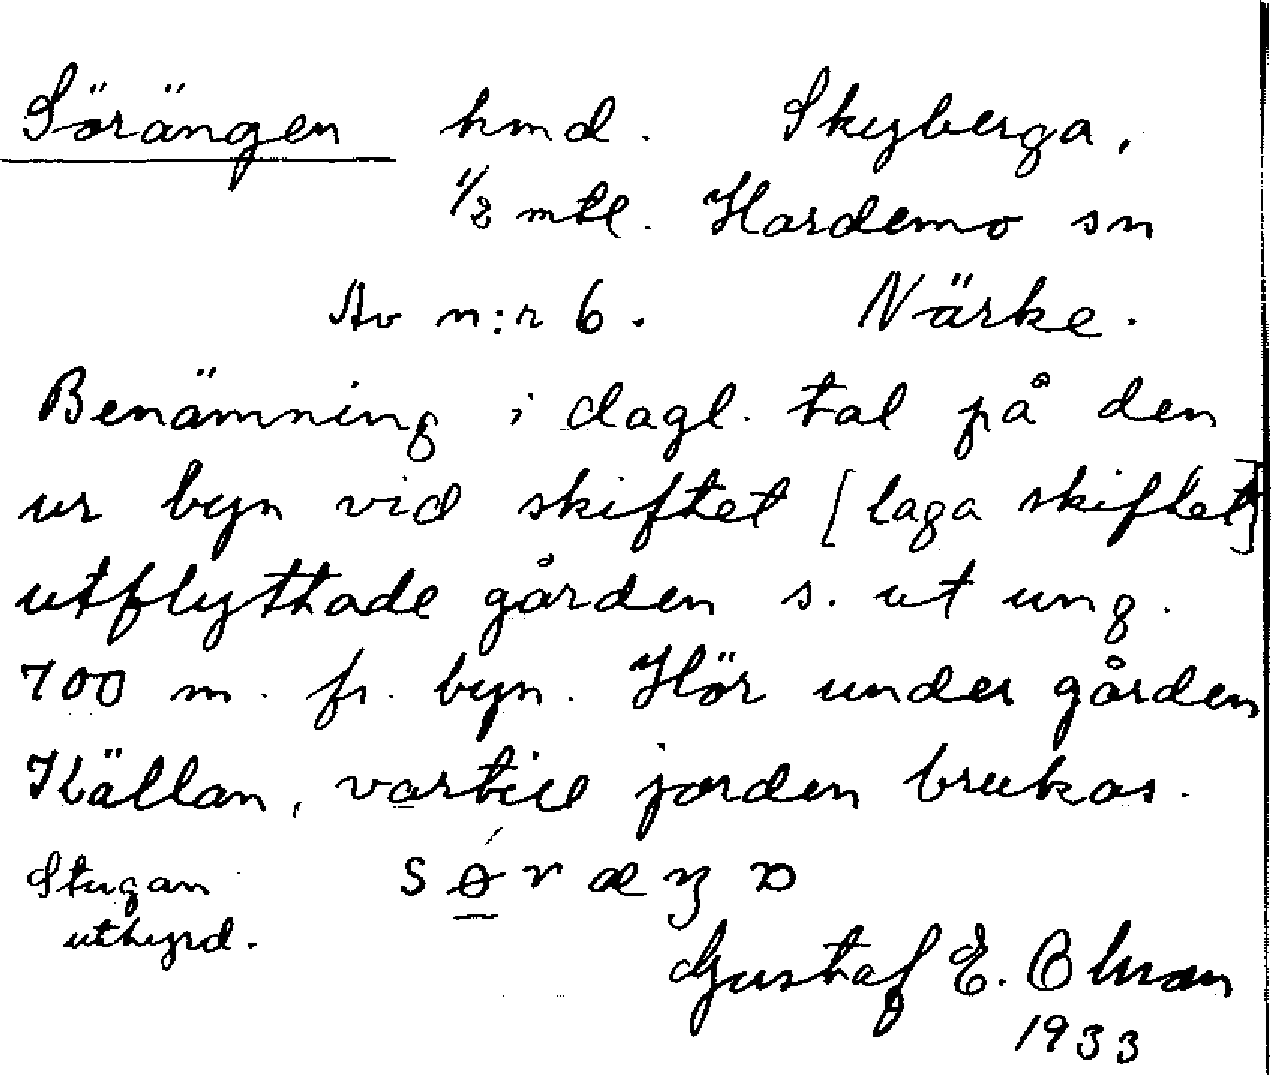 Sörängen hmd. Skyberga,
1/2 mtl. Hardemo sn
Av n:r 6. Närke.
Benämning i dagl. tal på den
ur byn vid skiftet [laga skiftet]
utflyttade gården s. ut ung.
700 m. fr. byn. Hör under gården
Källan, vartill jorden brukas.
Stugan
uthyrd.
Gustaf E. Ohman
1933